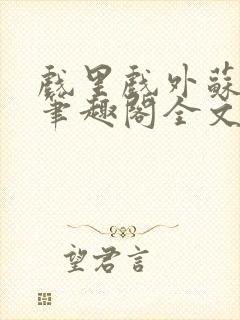 戲里戲外蘇
筆趣閣全文
望君言